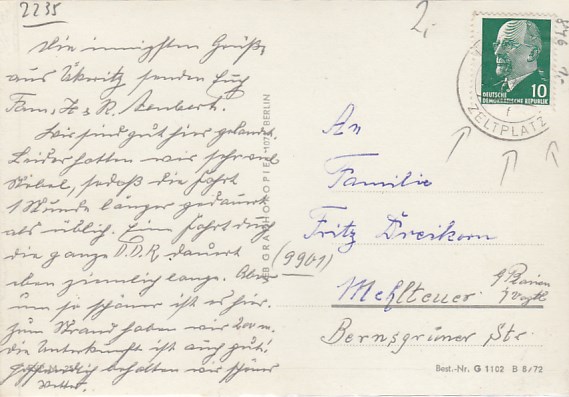 2235
2,-
Die innigsten Grüße
aus Ückeritz senden Euch
Fam. H. & R.
Wir sind gut hier gelandet.
Leider hatten wir sehr viel
Nebel, sodaß die Fahrt
1 Stunde länger gedauert
als üblich. Eine Fahrt durch
die ganze D.D.R. dauert
eben ziemlich lange. Aber
um so schöner ist es hier.
Zum Strand haben wir 200 m.
Die Unterkunft ist auch gut!
Hoffentlich behalten wir schönes
Wetter.
BERLIN
10
DEUTSCHE
DEMOKRATISCHE REPUBLIK
f
ZELTPLATZ
An
Familie
Fritz Dreikorn
(9901)
Mehlteuer
b/Plauen
i/Vogtl
Bernsgrüner Str.
Best.-Nr. G 1102 B 8/72